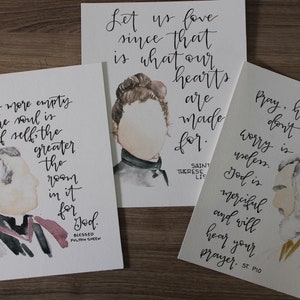 more empty
soul is
self the
greater
the
room
in it
for
God.
BLESSED
FULTON SHEEN
Let us love
since that
is what our
hearts
are
made
for.
SAINT
THERESE
LIS
Pray, h
don't
worry is
useless.
God is
merciful
and will
hear your
prayer. ST PIO